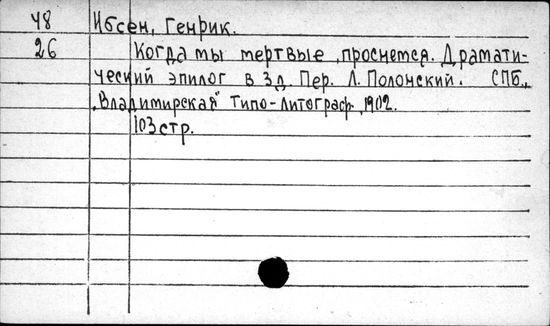 48 Ибсен, Генрик.
26 Когда мы мертвые проснемся. Драмати-
ческий эпилог в 3 д. Пер. Л. Полонский. СПБ.,
"Владимирская" Типо-литограф., 1902.
103 стр.